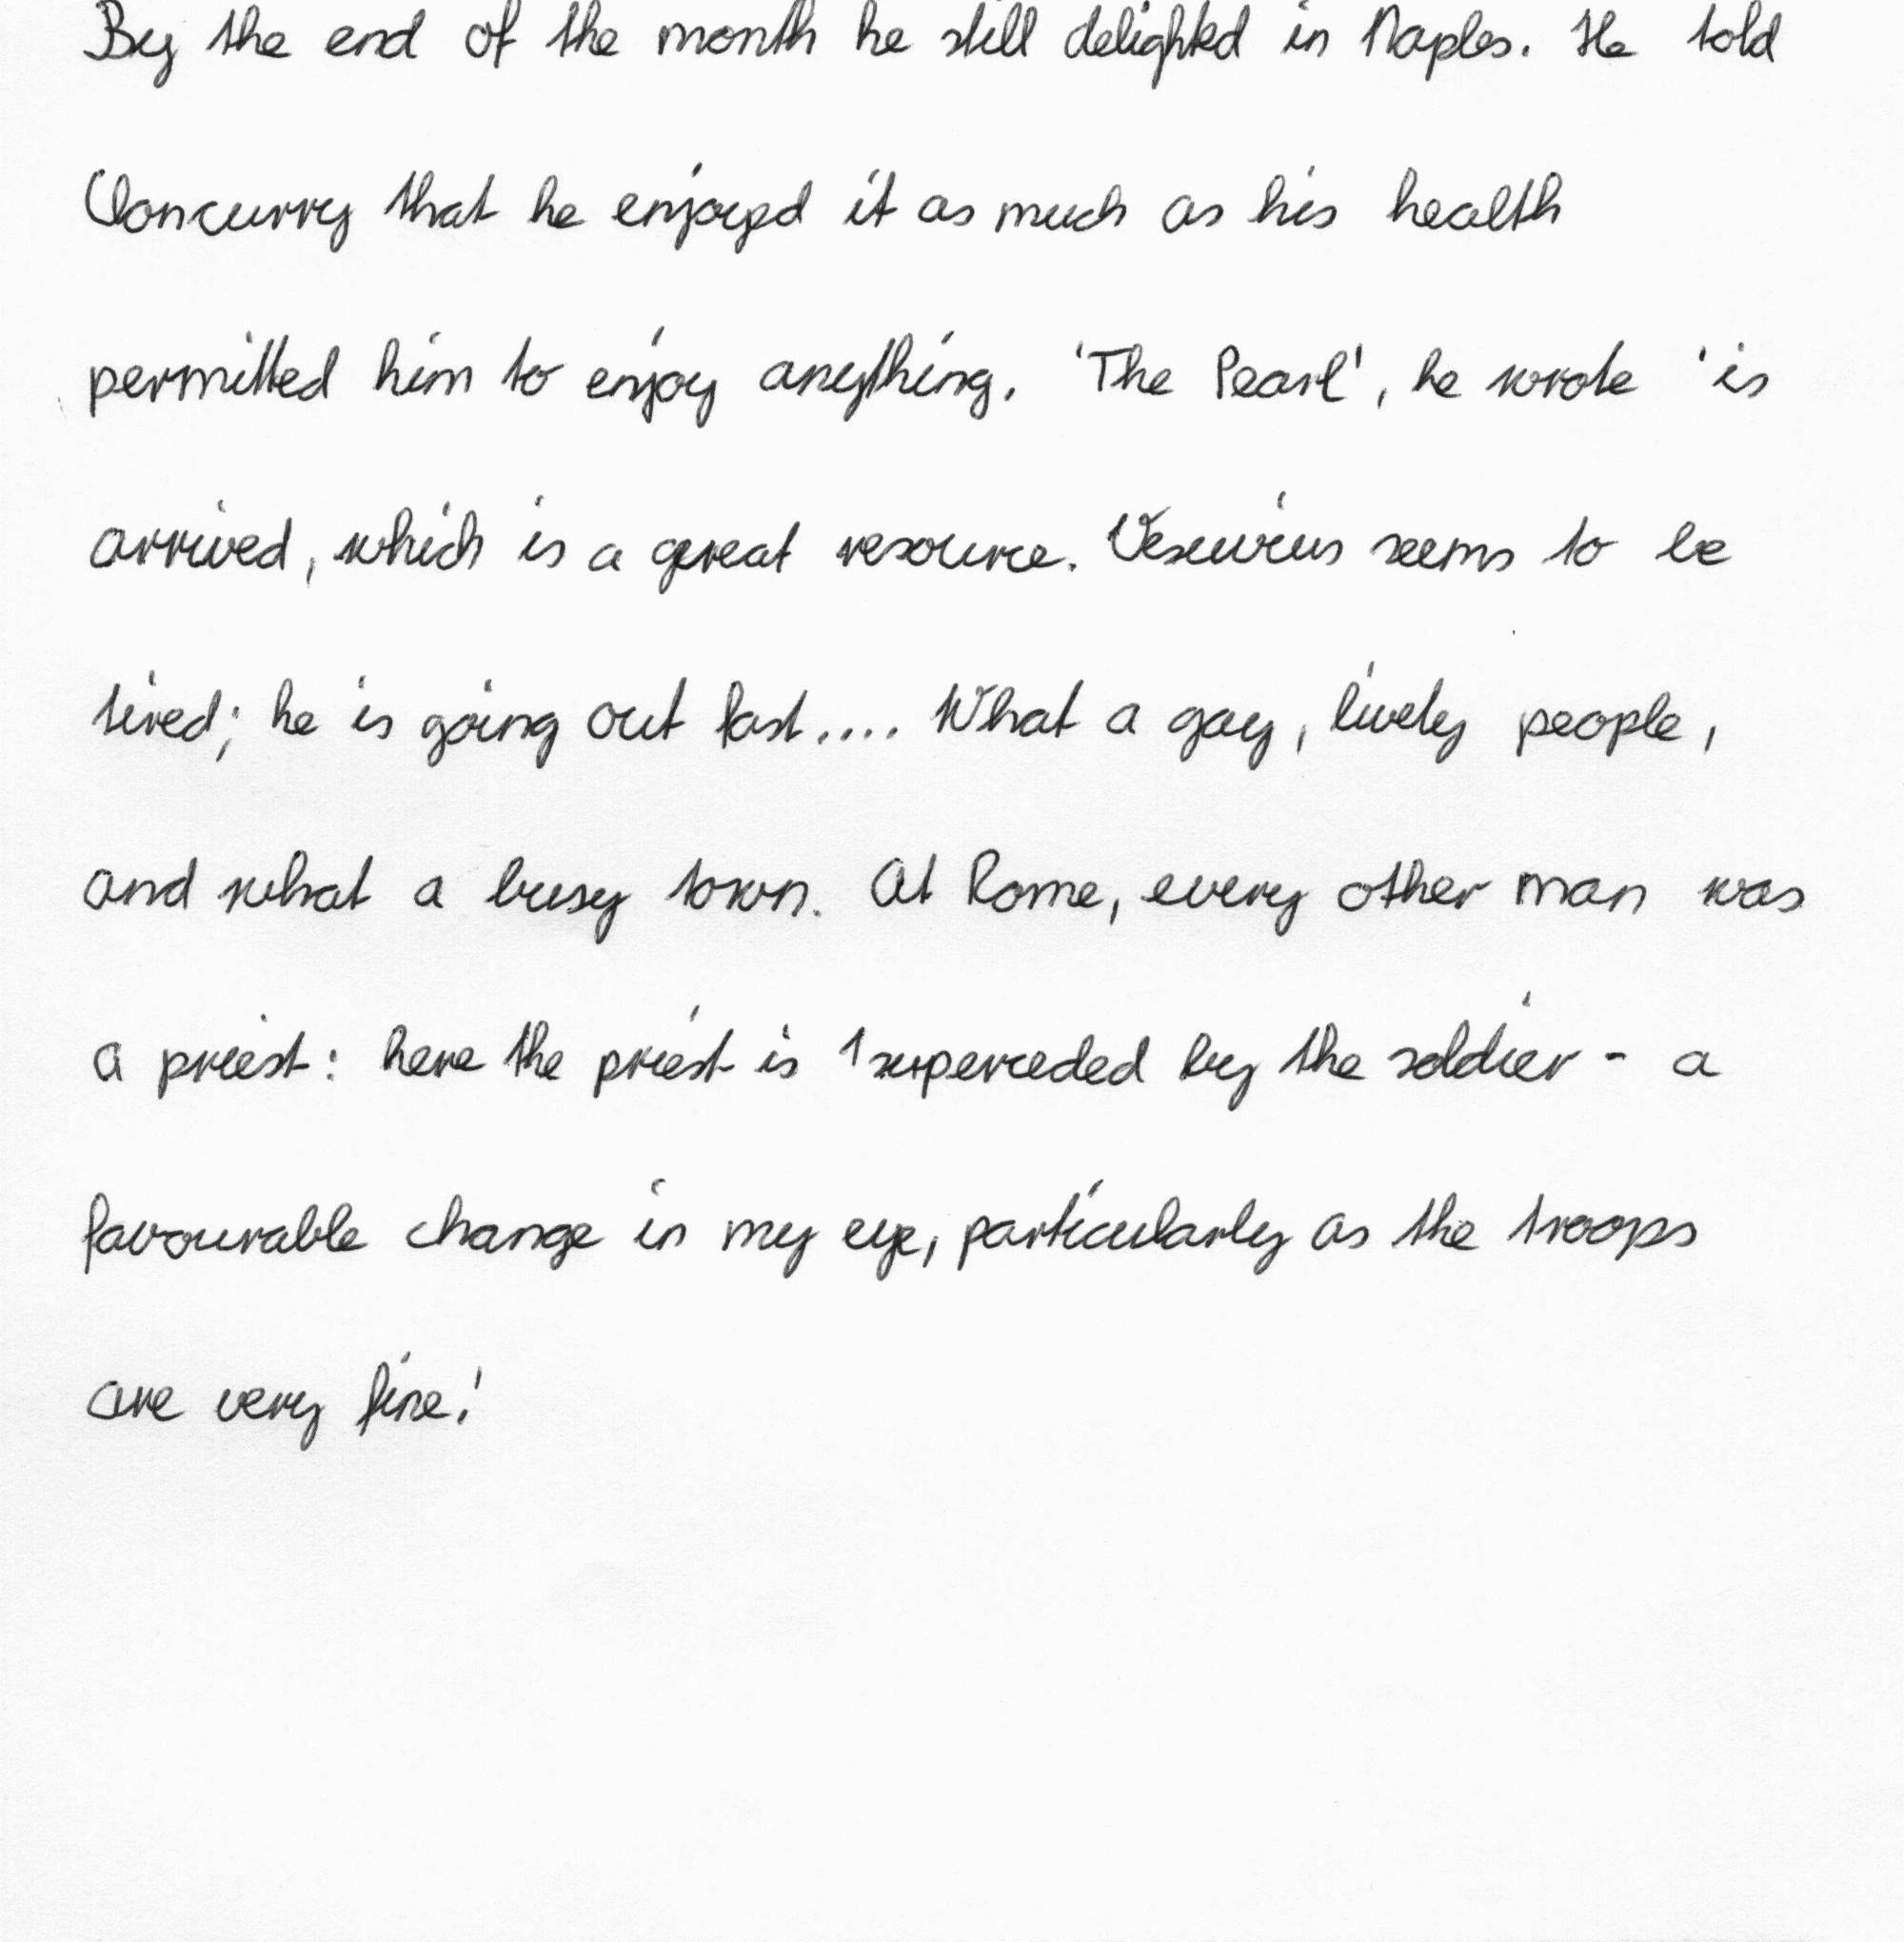 By the end of the month he still delighted in Naples. He told
Cloncurry that he enjoyed it as much as his health
permitted him to enjoy anything. 'The Pearl', he wrote 'is
arrived, which is a great resource. Vesuvius seems to be
tired; he is going out fast.... What a gay, lively people,
and what a busy town. At Rome, every other man was
a priest: here the priest is superceded by the soldier - a
favourable change in my eye, particularly as the troops
are very fine!